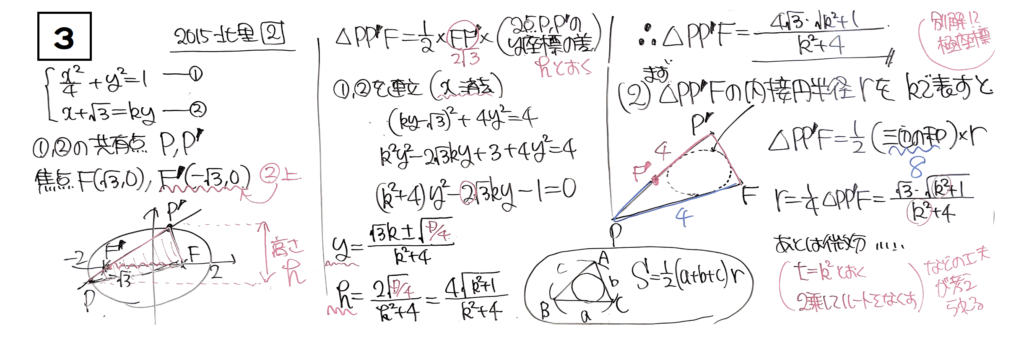 3
2015北里[2]
x²/4+y²=1 ―①
x+√3=ky ―②
①,②の共有点 P,P'
焦点F(√3,0), F'(-√3,0) ②上
P'
F'
F
-2
-√3
2
P
高さ
h
△PP'F=1/2×FF'×(2点P,P'のy座標の差)
2√3
hとおく
①,②を連立(x消去)
(ky-√3)²+4y²=4
k²y²-2√3ky+3+4y²=4
(k²+4)y²-2√3ky-1=0
y=(√3k±√(D/4))/(k²+4)
h=2√(D/4)/(k²+4)=4√(k²+1)/(k²+4)
∴△PP'F=4√3・√(k²+1)/(k²+4)
別解は
極座標
まず
(2)△PP'Fの内接円半径rをkで表すと
P'
4
F'
F
4
P
△PP'F=1/2(三辺の和)×r
8
r=1/4△PP'F=√3・√(k²+1)/(k²+4)
A
b
B
C
a
S=1/2(a+b+c)r
あとは微分……
t=k²とおく
2乗してルートをなくす
などの工夫
が考え
られる